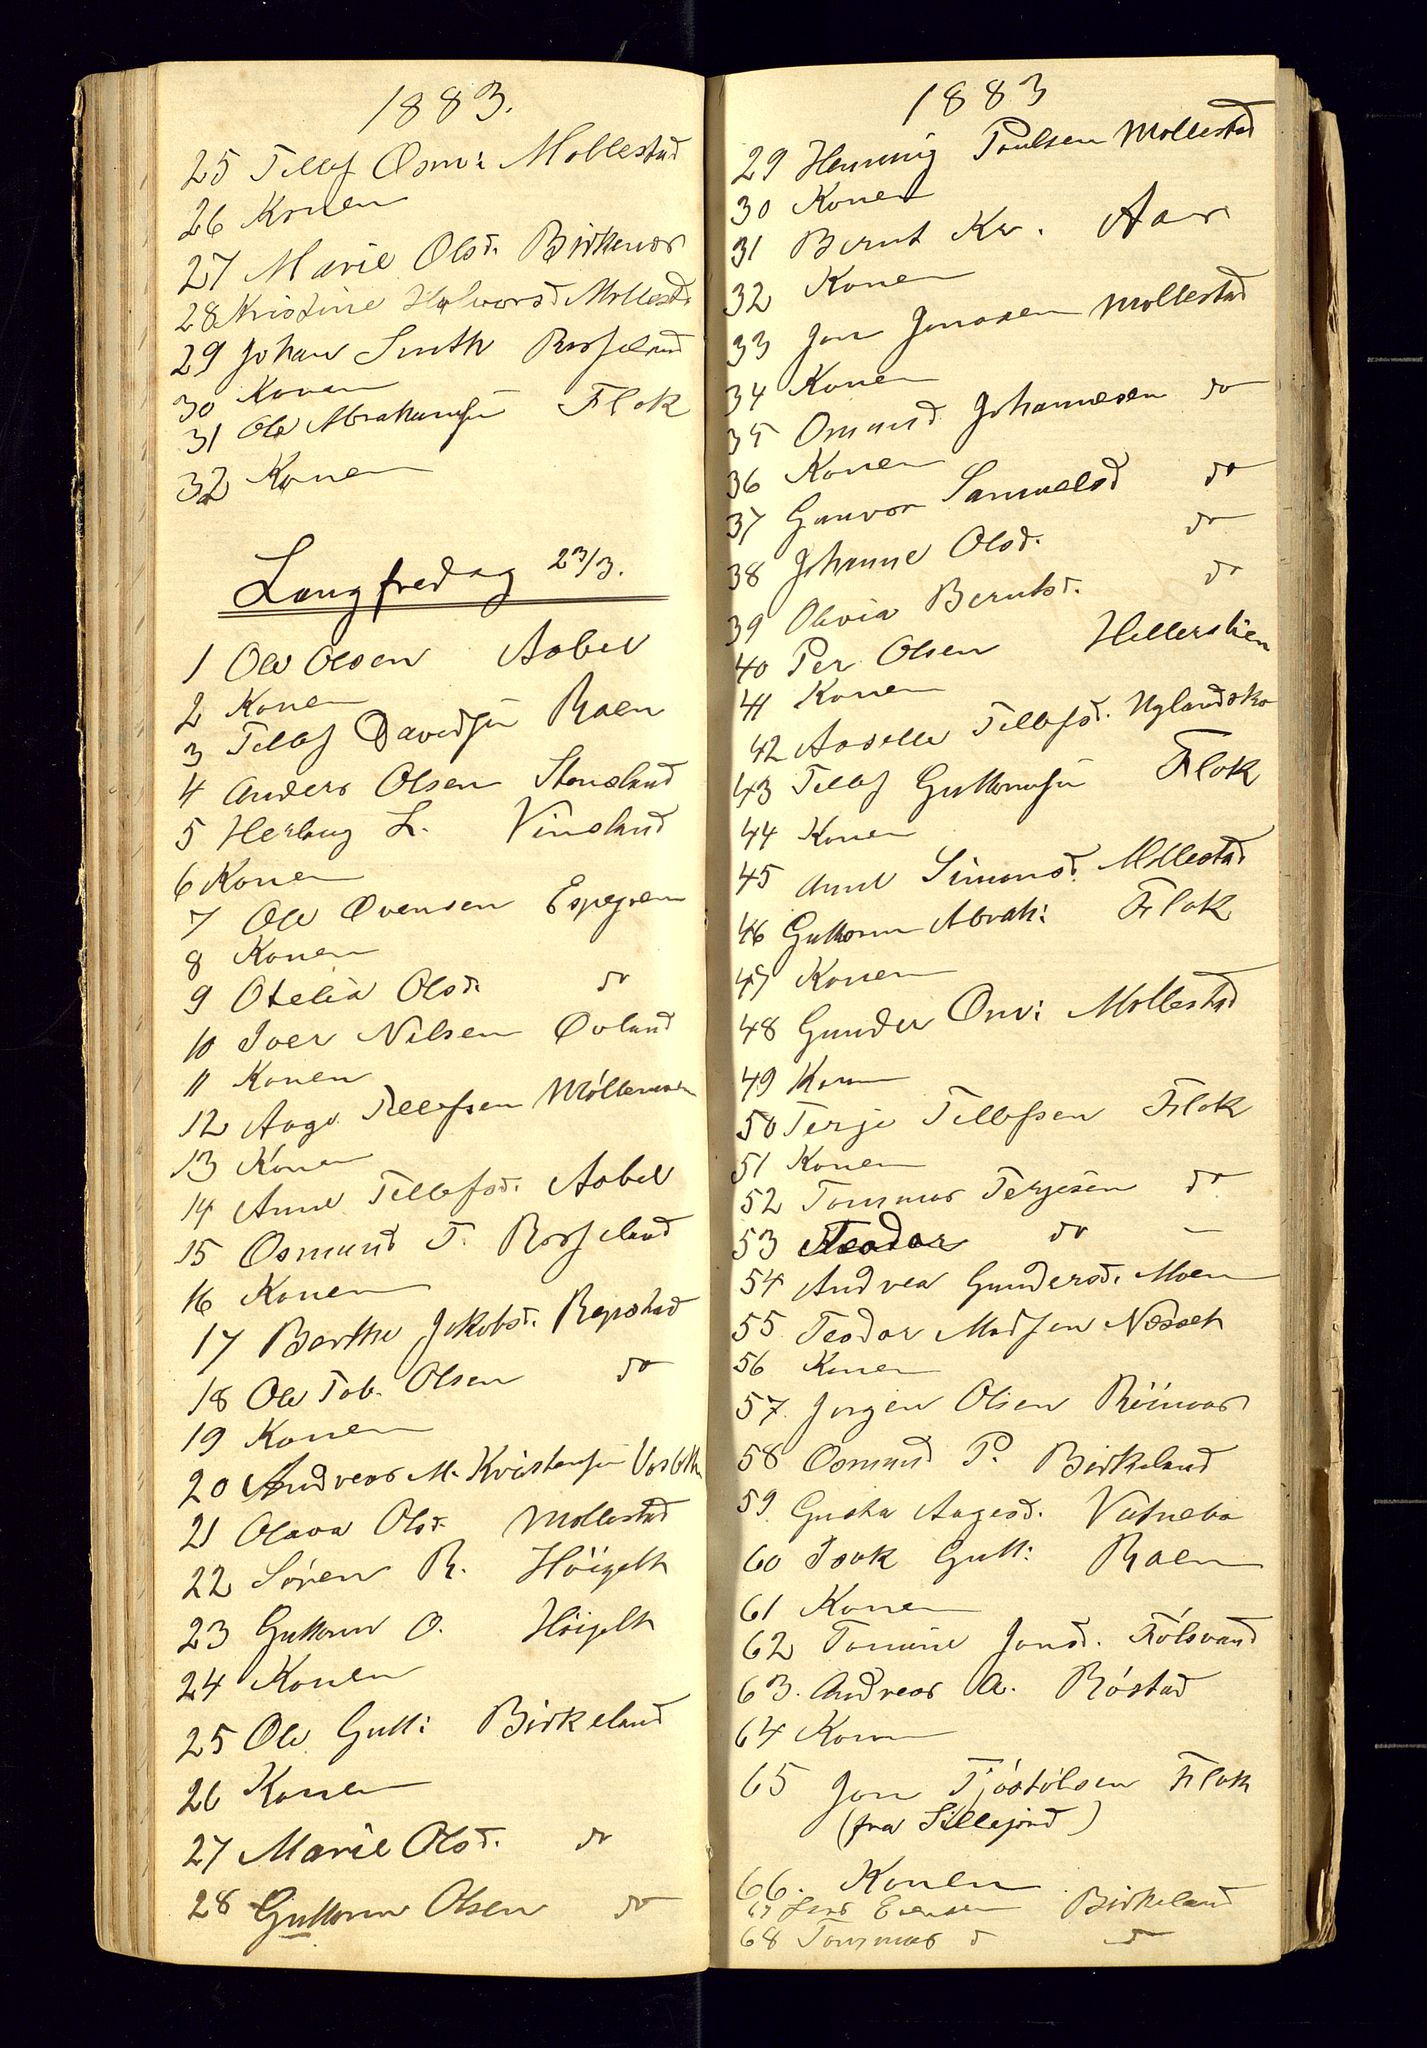 1883.
25 Tellef Osm: Mollestad
26 Konen
27 Marie Olsd. Birkenes
28 Kristine Halvorsd Mollestd
29 Johan Smith Rosseland
30 Konen
31 Ole Abrahamsen Flak
32 Konen
Langfredag 23/3.
1 Ole Olsen Aabel
2 Konen
3 Tellef Davidsen Raen
4 Anders Olsen Stensland
5 Herlaug L. Vinsland
6 Konen
7 Ole Evensen Espegren
8 Konen
9 Otelia Olsd. do
10 Iver Nilsen Øvland
11 Konen
12 Aage Tellefsen Møllemoen
13 Konen
14 Anne Tellefsd. Aabel
15 Osmund T. Rosseland
16 Konen
17 Berthe Jakobsd. Repstad
18 Ole Tob. Olsen do
19 Konen
20 Andreas M. Kristensen
21 Olava Olsd. Mollestad
22 Søren R. Höigilt
23 Guttorm O. Höigilt
24 Konen
25 Ole Gutt: Birkeland
26 Konen
27 Marie Olsd. do
28 Guttorm Olsen do
1883
29 Henning Poulsen Mollestad
30 Konen
31 Bernt Kr. Aas
32 Konen
33 Jon Jonassen Mollestad
34 Konen
35 Omund Johannesen do
36 Konen
37 Gunvor Samuelsd do
38 Johanne Olsd. do
39 Olivia Berntsd. do
40 Per Olsen Hellerslien
41 Konen
42 Aaselle Tellefsd. Uglandsko
43 Tellef Guttormsen Flak
44 Konen
45 Anne Simonsd. Mollestad
46 Guttorm Abrah: Flak
47 Konen
48 Gunder Om: Mollestad
49 Konen
50 Terje Tellefsen Flak
51 Konen
52 Tommas Terjesen do
53 Teodor do –
54 Andrea Gundersd. Moen
55 Teodor Madsen Næset
56 Konen
57. Jørgen Olsen Röinaas
58 Osmund P. Birkeland
59. Guska Aagesd. Vatnebo
60 Isak Gutt: Raen
61 Konen
62 Tomine Jonsd. Fölsvand
63. Andreas A. Röstad
64 Konen
65 Jon Tjöstölsen Flak
(fra Sillejord)
66. Konen
67 Jens Evensen Birkeland
68 Tommas d do